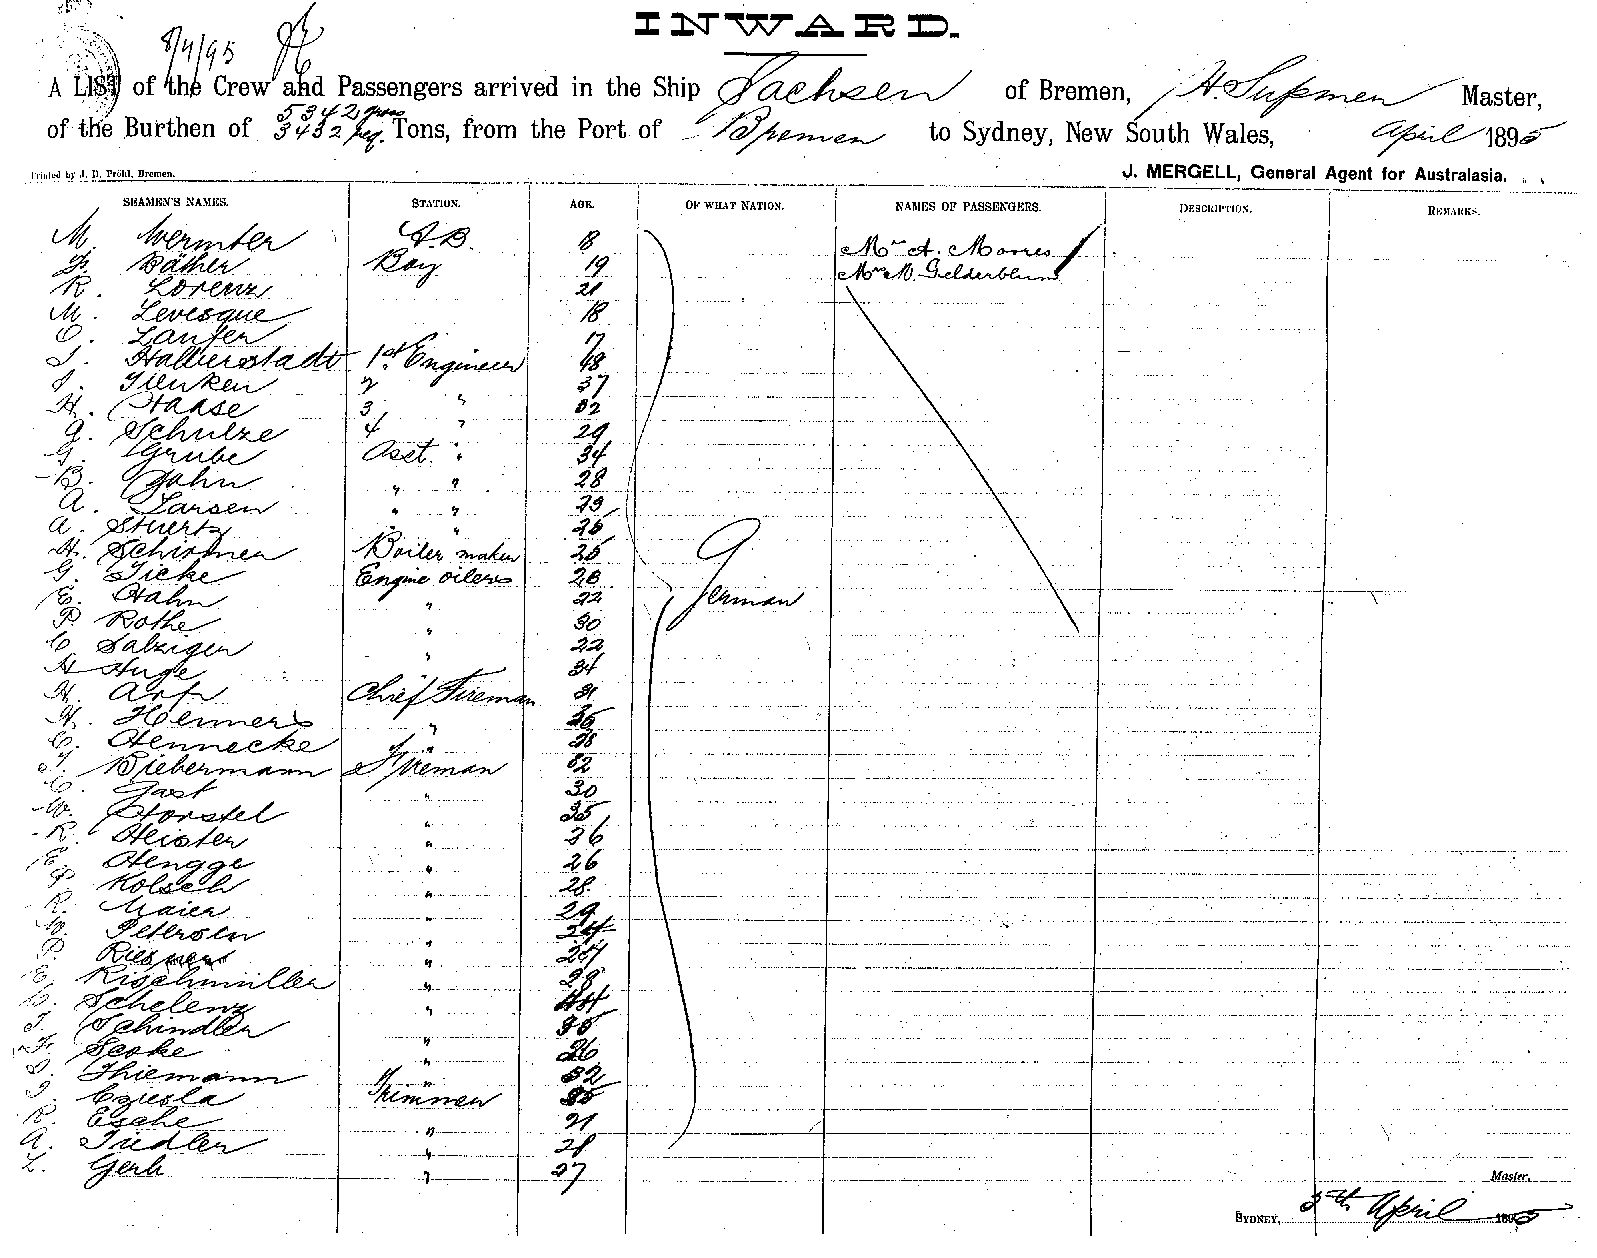 INWARD.
8/4/95
A LIST of the Crew and Passengers arrived in the Ship Sachsen of Bremen, H. Supmer Master,
5342 gross
of the Burthen of 3432 reg. Tons, from the Port of Bremen to Sydney, New South Wales, April 1895
Printed by J. D. Pröhl, Bremen.
J. MERGELL, General Agent for Australasia.
SEAMEN'S NAMES. STATION. AGE. OF WHAT NATION. NAMES OF PASSENGERS. DESCRIPTION. REMARKS.
M. Wermter A.B. 18 Mr A. Morres
Fr. Däther Boy 19 Mrs M. Gelderblum
R. Lorenz 21
M. Levesque 18
O. Laufer 17
J. Halberstadt 1st Engineer 48
J. Tienken 2 37
H. Haase 3 " 32
G. Schulze 4 " 29
G. Grube Asst. " 34
B. John " " 28
A. Larsen " " 29
A. Stuertz " " 26
H. Schirmer Boiler maker 25
G. Ticke Engine oilers 28
E. Hahn " 22 German
P. Rothe " 30
C. Salziger " 22
H. Huge 34
H. Arp Chief Fireman 31
H. Helmers " 36
C. Hennecke " 28
J. Biebermann Fireman 32
C. Gast " 30
W. Horstel " 35
R. Heister " 26
E. Hengge " 26
P. Kölsch " 28
R. Maier " 29
W. Petersen " 24
P. " 24
E. Rischmüller " 29
C. Schelenz " 44
J. Schindler 35
Fr. Seoke " 26
D. Thiemann " 32
J. Cziesla Trimmer 35
R. Esche 21
A. Tiedler " 28
L. Gerh " 27
Master.
SYDNEY, 5th April 1895